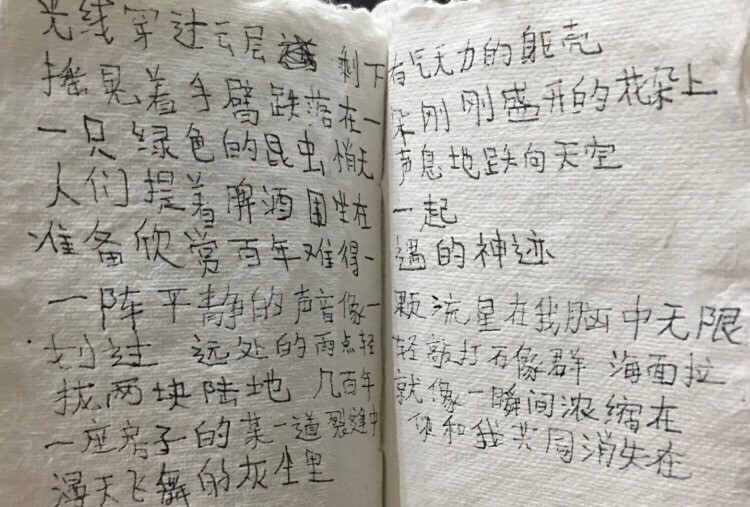 光线穿过云层 剩下有气无力的躯壳
摇晃着手臂跌落在一朵刚刚盛开的花朵上
一只绿色的昆虫悄无声息地跌向天空
人们提着酒围坐在一起
准备欣赏百年难得一遇的神迹
一阵平静的声音像一颗流星在我脑中无限
划过 远处的雨点轻轻敲打石像群 海面拉
拢两块陆地 几百年就像一瞬间浓缩在
一座房子的某一道裂缝中 你和我共同消失在
漫天飞舞的灰尘里